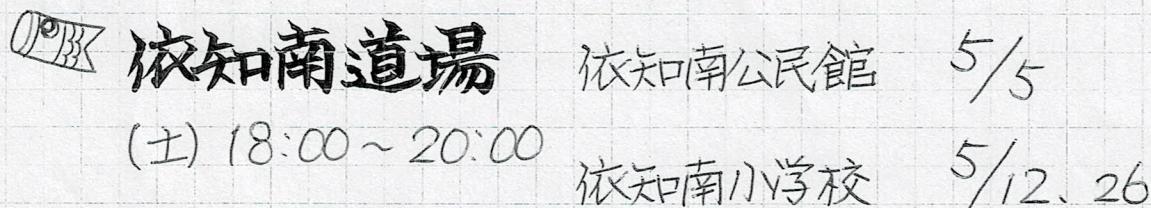 依知南道場 依知南公民館 5/5
(土) 18:00~20:00
依知南小学校 5/12、26